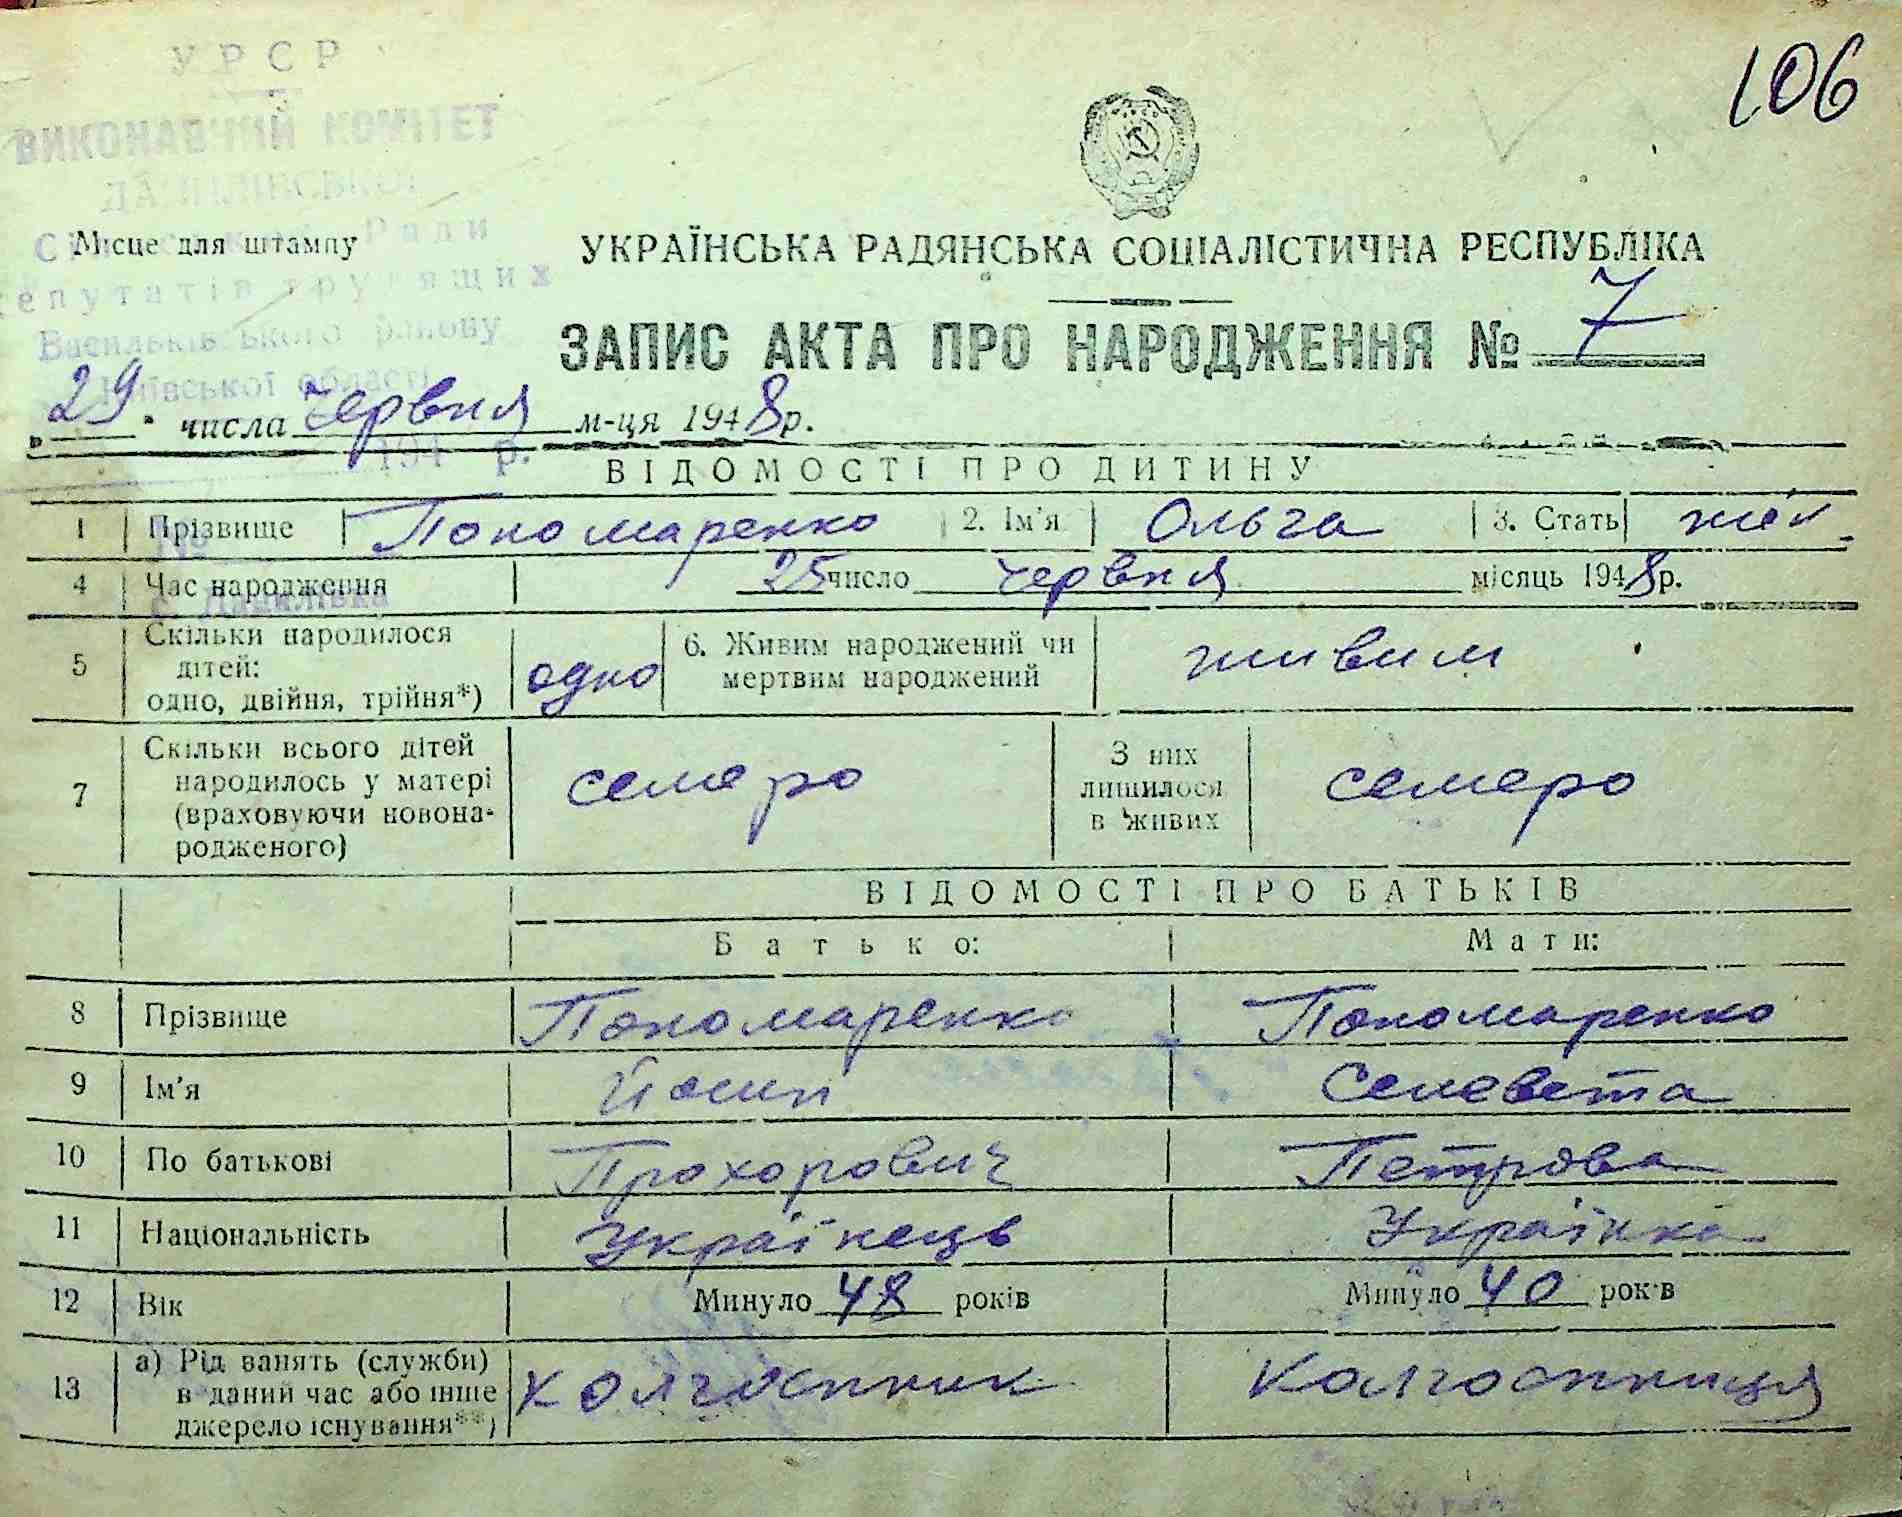 106
УРСР
ВИКОНАВЧИЙ КОМІТЕТ
ДАНИЛІВСЬКОЇ
Сільської Ради
депутатів трудящих
Васильківського району
Київської області
194 р.
№
с. Данилівка
Місце для штампу
УКРАЇНСЬКА РАДЯНСЬКА СОЦІАЛІСТИЧНА РЕСПУБЛІКА
ЗАПИС АКТА ПРО НАРОДЖЕННЯ № 7
„29“ числа червня м-ця 1948 р.
ВІДОМОСТІ ПРО ДИТИНУ
1 Прізвище Пономаренко 2. Ім'я Ольга 3. Стать жін.
4 Час народження 25 число червня місяць 1948 р.
5 Скільки народилося дітей: одно, двійня, трійня*) одно 6. Живим народжений чи мертвим народжений живим
7 Скільки всього дітей народилось у матері (враховуючи новонародженого) семеро З них лишилося в живих семеро
ВІДОМОСТІ ПРО БАТЬКІВ
Батько: Мати:
8 Прізвище Пономаренко Пономаренко
9 Ім'я Йосип Селевета
10 По батькові Прохорович Петрова
11 Національність Українець Українка
12 Вік Минуло 48 років Минуло 40 років
13 а) Рід занять (служби) в даний час або інше джерело існування**) колгоспник Колгоспниця